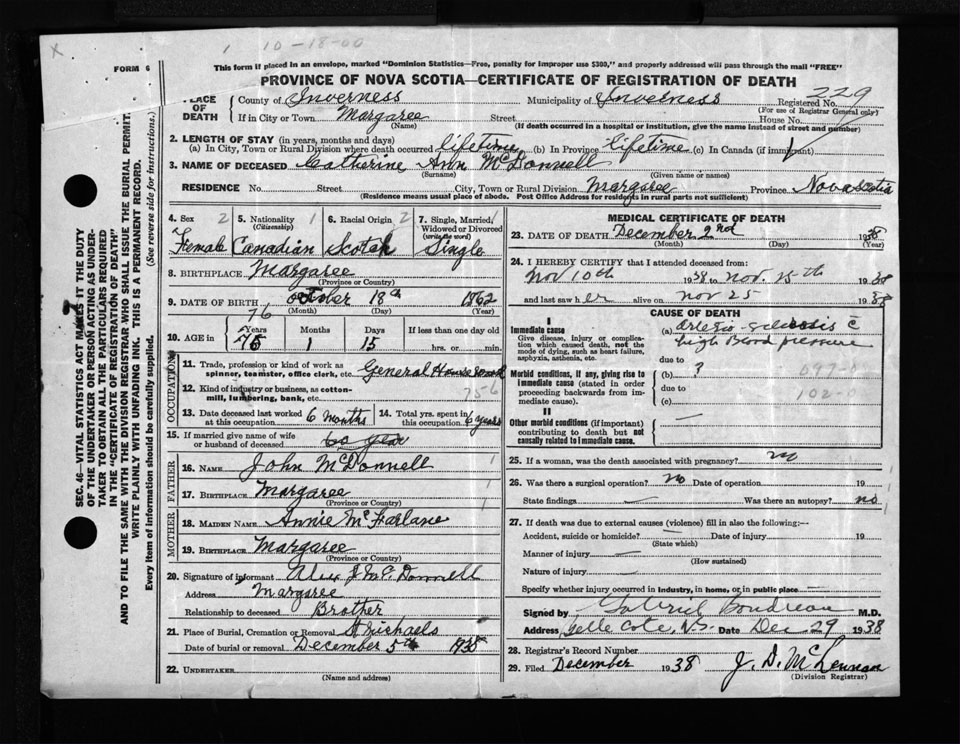 x
1 10-18-00
FORM 6
This form if placed in an envelope, marked "Dominion Statistics—Free, penalty for improper use $300," and properly addressed will pass through the mail "FREE"
PROVINCE OF NOVA SCOTIA—CERTIFICATE OF REGISTRATION OF DEATH
PLACE OF DEATH
County of Inverness Municipality of Inverness Registered No. 229
(For use of Registrar General only)
If in City or Town Margaree Street House No.
(Name) (If death occurred in a hospital or institution, give the name instead of street and number)
2. LENGTH OF STAY (in years, months and days)
(a) In City, Town or Rural Division where death occurred lifetime (b) In Province lifetime (c) In Canada (if immigrant)
3. NAME OF DECEASED Catherine Ann McDonnell
(Surname) (Given name or names)
RESIDENCE No. Street City, Town or Rural Division Margaree Province Nova Scotia
(Residence means usual place of abode. Post Office Address for residents in rural parts not sufficient)
SEC. 46—VITAL STATISTICS ACT MAKES IT THE DUTY
OF THE UNDERTAKER OR PERSON ACTING AS UNDER-
TAKER TO OBTAIN ALL THE PARTICULARS REQUIRED
IN THE "CERTIFICATE OF REGISTRATION OF DEATH"
AND TO FILE THE SAME WITH THE DIVISION REGISTRAR WHO SHALL ISSUE THE BURIAL PERMIT.
WRITE PLAINLY WITH UNFADING INK. THIS IS A PERMANENT RECORD.
Every item of information should be carefully supplied. (See reverse side for instructions.)
4. Sex 2 5. Nationality 1 6. Racial Origin 2 7. Single, Married, 1
(Citizenship) Widowed or Divorced
(write the word)
Female Canadian Scotch Single
8. BIRTHPLACE Margaree
(Province or Country)
9. DATE OF BIRTH October 18th 1862
(Month) (Day) (Year)
76
10. AGE in Years Months Days If less than one day old
75 1 15 hrs. or min.
OCCUPATION
11. Trade, profession or kind of work as
spinner, teamster, office clerk, etc. General Housework
12. Kind of industry or business, as cotton- 756
mill, lumbering, bank, etc.
13. Date deceased last worked 6 months 14. Total yrs. spent in
at this occupation this occupation 6 years
15. If married give name of wife 60 year
or husband of deceased
FATHER
16. NAME John McDonnell
17. BIRTHPLACE Margaree
(Province or Country)
MOTHER
18. MAIDEN NAME Annie McFarlane
19. BIRTHPLACE Margaree
(Province or Country)
20. Signature of informant Alex J McDonnell
Address Margaree
Relationship to deceased Brother
21. Place of Burial, Cremation or Removal St Michaels
Date of burial or removal December 5th 1938
22. UNDERTAKER
(Name and address)
MEDICAL CERTIFICATE OF DEATH
23. DATE OF DEATH December 2nd 1938
(Month) (Day) (Year)
24. I HEREBY CERTIFY that I attended deceased from:
Nov 10th 1938 to Nov. 25th 1938
and last saw her alive on Nov 25 1938
CAUSE OF DEATH
I
Immediate cause (a) arterio-sclerosis c
Give disease, injury or complica- high Blood pressure
tion which caused death, not the
mode of dying, such as heart failure,
asphyxia, asthenia, etc. due to
Morbid conditions, if any, giving rise to (b) ? 097-0
immediate cause (stated in order due to
proceeding backwards from im- 102-0
mediate cause). (c)
II
Other morbid conditions (if important)
contributing to death but not
causally related to immediate cause.
25. If a woman, was the death associated with pregnancy? no
26. Was there a surgical operation? no Date of operation 19
State findings — Was there an autopsy? no
27. If death was due to external causes (violence) fill in also the following:—
Accident, suicide or homicide? — Date of injury 19
(State which)
Manner of injury —
(How sustained)
Nature of injury —
Specify whether injury occurred in industry, in home, or in public place
Signed by Gabriel Boudreau M.D.
Address Belle Cote, N.S. Date Dec 29 1938
28. Registrar's Record Number
29. Filed December 1938 J. D. McLennan
(Division Registrar)